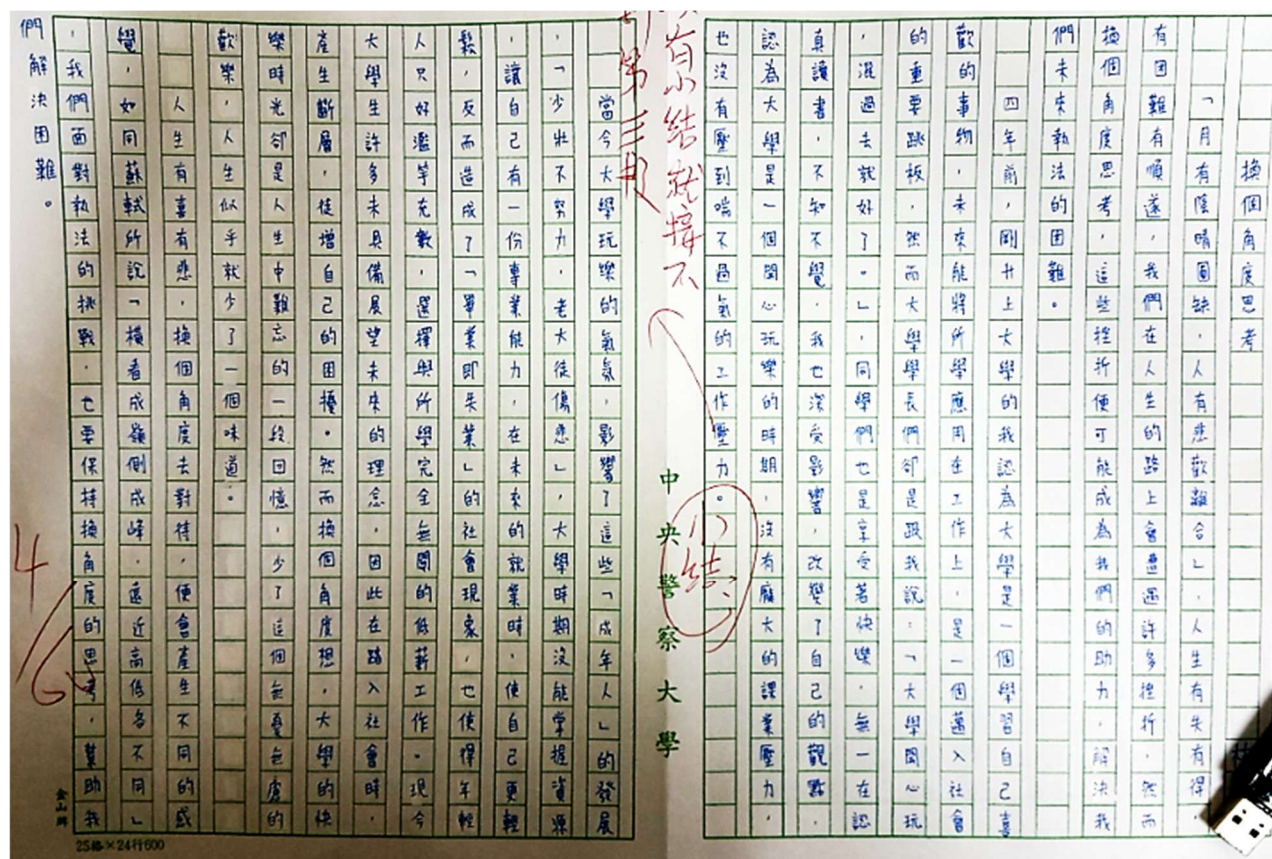 換個角度思考
「月有陰晴圓缺,人有悲歡離合」,人生有失有得
有困難有順遂,我們在人生的路上會遭遇許多挫折,然而
換個角度思考,這些挫折便可能成為我們的助力,解決我
們未來執法的困難。
四年前,剛升上大學的我認為大學是一個學習自己喜
歡的事物,未來能將所學應用在工作上,是一個邁入社會
的重要跳板,然而大學學長們卻是跟我說:「大學開心玩
,混過去就好了。」,同學們也是享受著快樂,無一在認
真讀書,不知不覺,我也深受影響,改變了自己的觀點
認為大學是一個開心玩樂的時期,沒有龐大的課業壓力,
也沒有壓到喘不過氣的工作壓力。
小結
有小結就接不
到第三段
中央警察大學
當今大學玩樂的氣氛,影響了這些「成年人」的發展
,「少壯不努力,老大徒傷悲」,大學時期沒能掌握資源
,讓自己有一份專業能力,在未來的就業時,使自己更輕
鬆,反而造成了「畢業即失業」的社會現象,也使得年輕
人只好濫竽充數,選擇與所學完全無關的低薪工作。現今
大學生許多未具備展望未來的理念,因此在踏入社會時,
產生斷層,徒增自己的困擾。然而換個角度想,大學的快
樂時光卻是人生中難忘的一段回憶,少了這個無憂無慮的
歡樂,人生似乎就少了一個味道。
人生有喜有悲,換個角度去對待,便會產生不同的感
覺,如同蘇軾所說「橫看成嶺側成峰,遠近高低各不同」
,我們面對執法的挑戰,也要保持換角度的思考,幫助我
們解決困難。
4/6
金山牌
25格×24行600